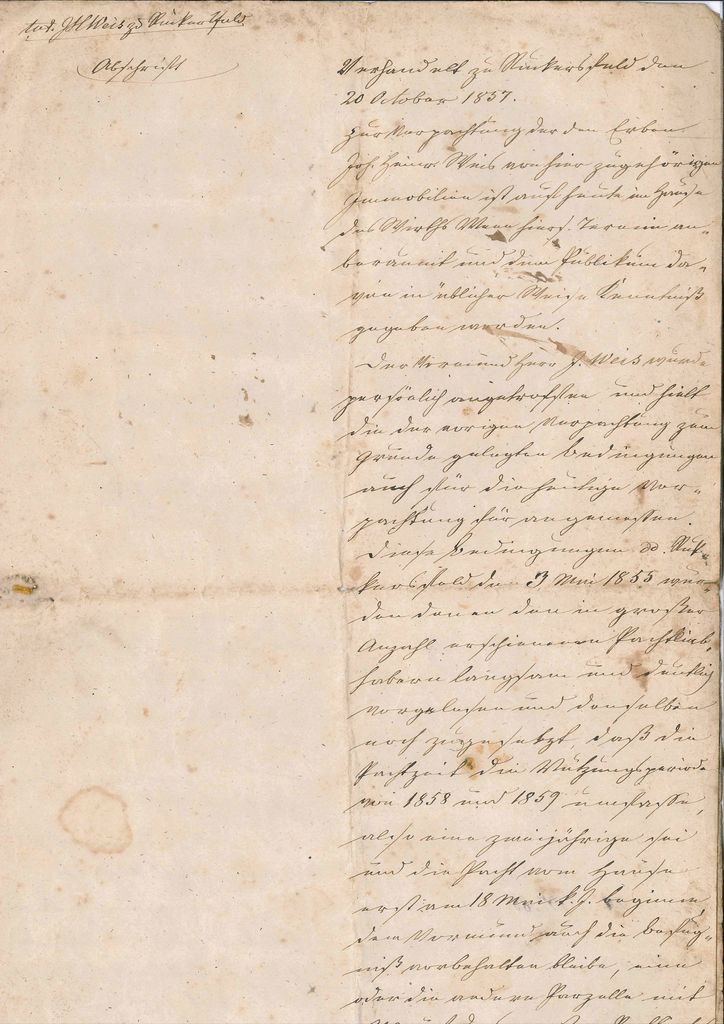 tut. JH Weis zu Rückersfeld
Abschrift
Verhandelt zu Rückersfeld den
20 October 1857.
Zur Verpachtung der den Erben
Joh. Heinr. Weis von hier zugehörigen
Immobilien ist auf heute im Hause
des Wirths hiers. Termin an-
beraumt und dem Publikum da-
von in üblicher Weise Kenntniß
gegeben worden.
Der Vormund Herr J. Weis wurde
persönlich angetroffen und hielt
die der vorigen Verpachtung zum
Grunde gelegten Bedingungen
auch für die heutige Ver-
pachtung für angemessen.
Diese Bedingungen dd. Rük-
kersfeld den 3 Mai 1855 wur-
den denen den in großer
Anzahl erschienenen Pachtlieb-
habern langsam und deutlich
vorgelesen und denselben
noch zugesetzt, daß die
Pachtzeit die Nutzungsperiode
von 1858 und 1859 umfasse,
also eine zweijährige sei
und die Pacht vom Hause
erst am 18 Mai k. J. beginne,
dem Vormund auch die Befug-
niß vorbehalten bleibe, eine
oder die andere Parzelle mit